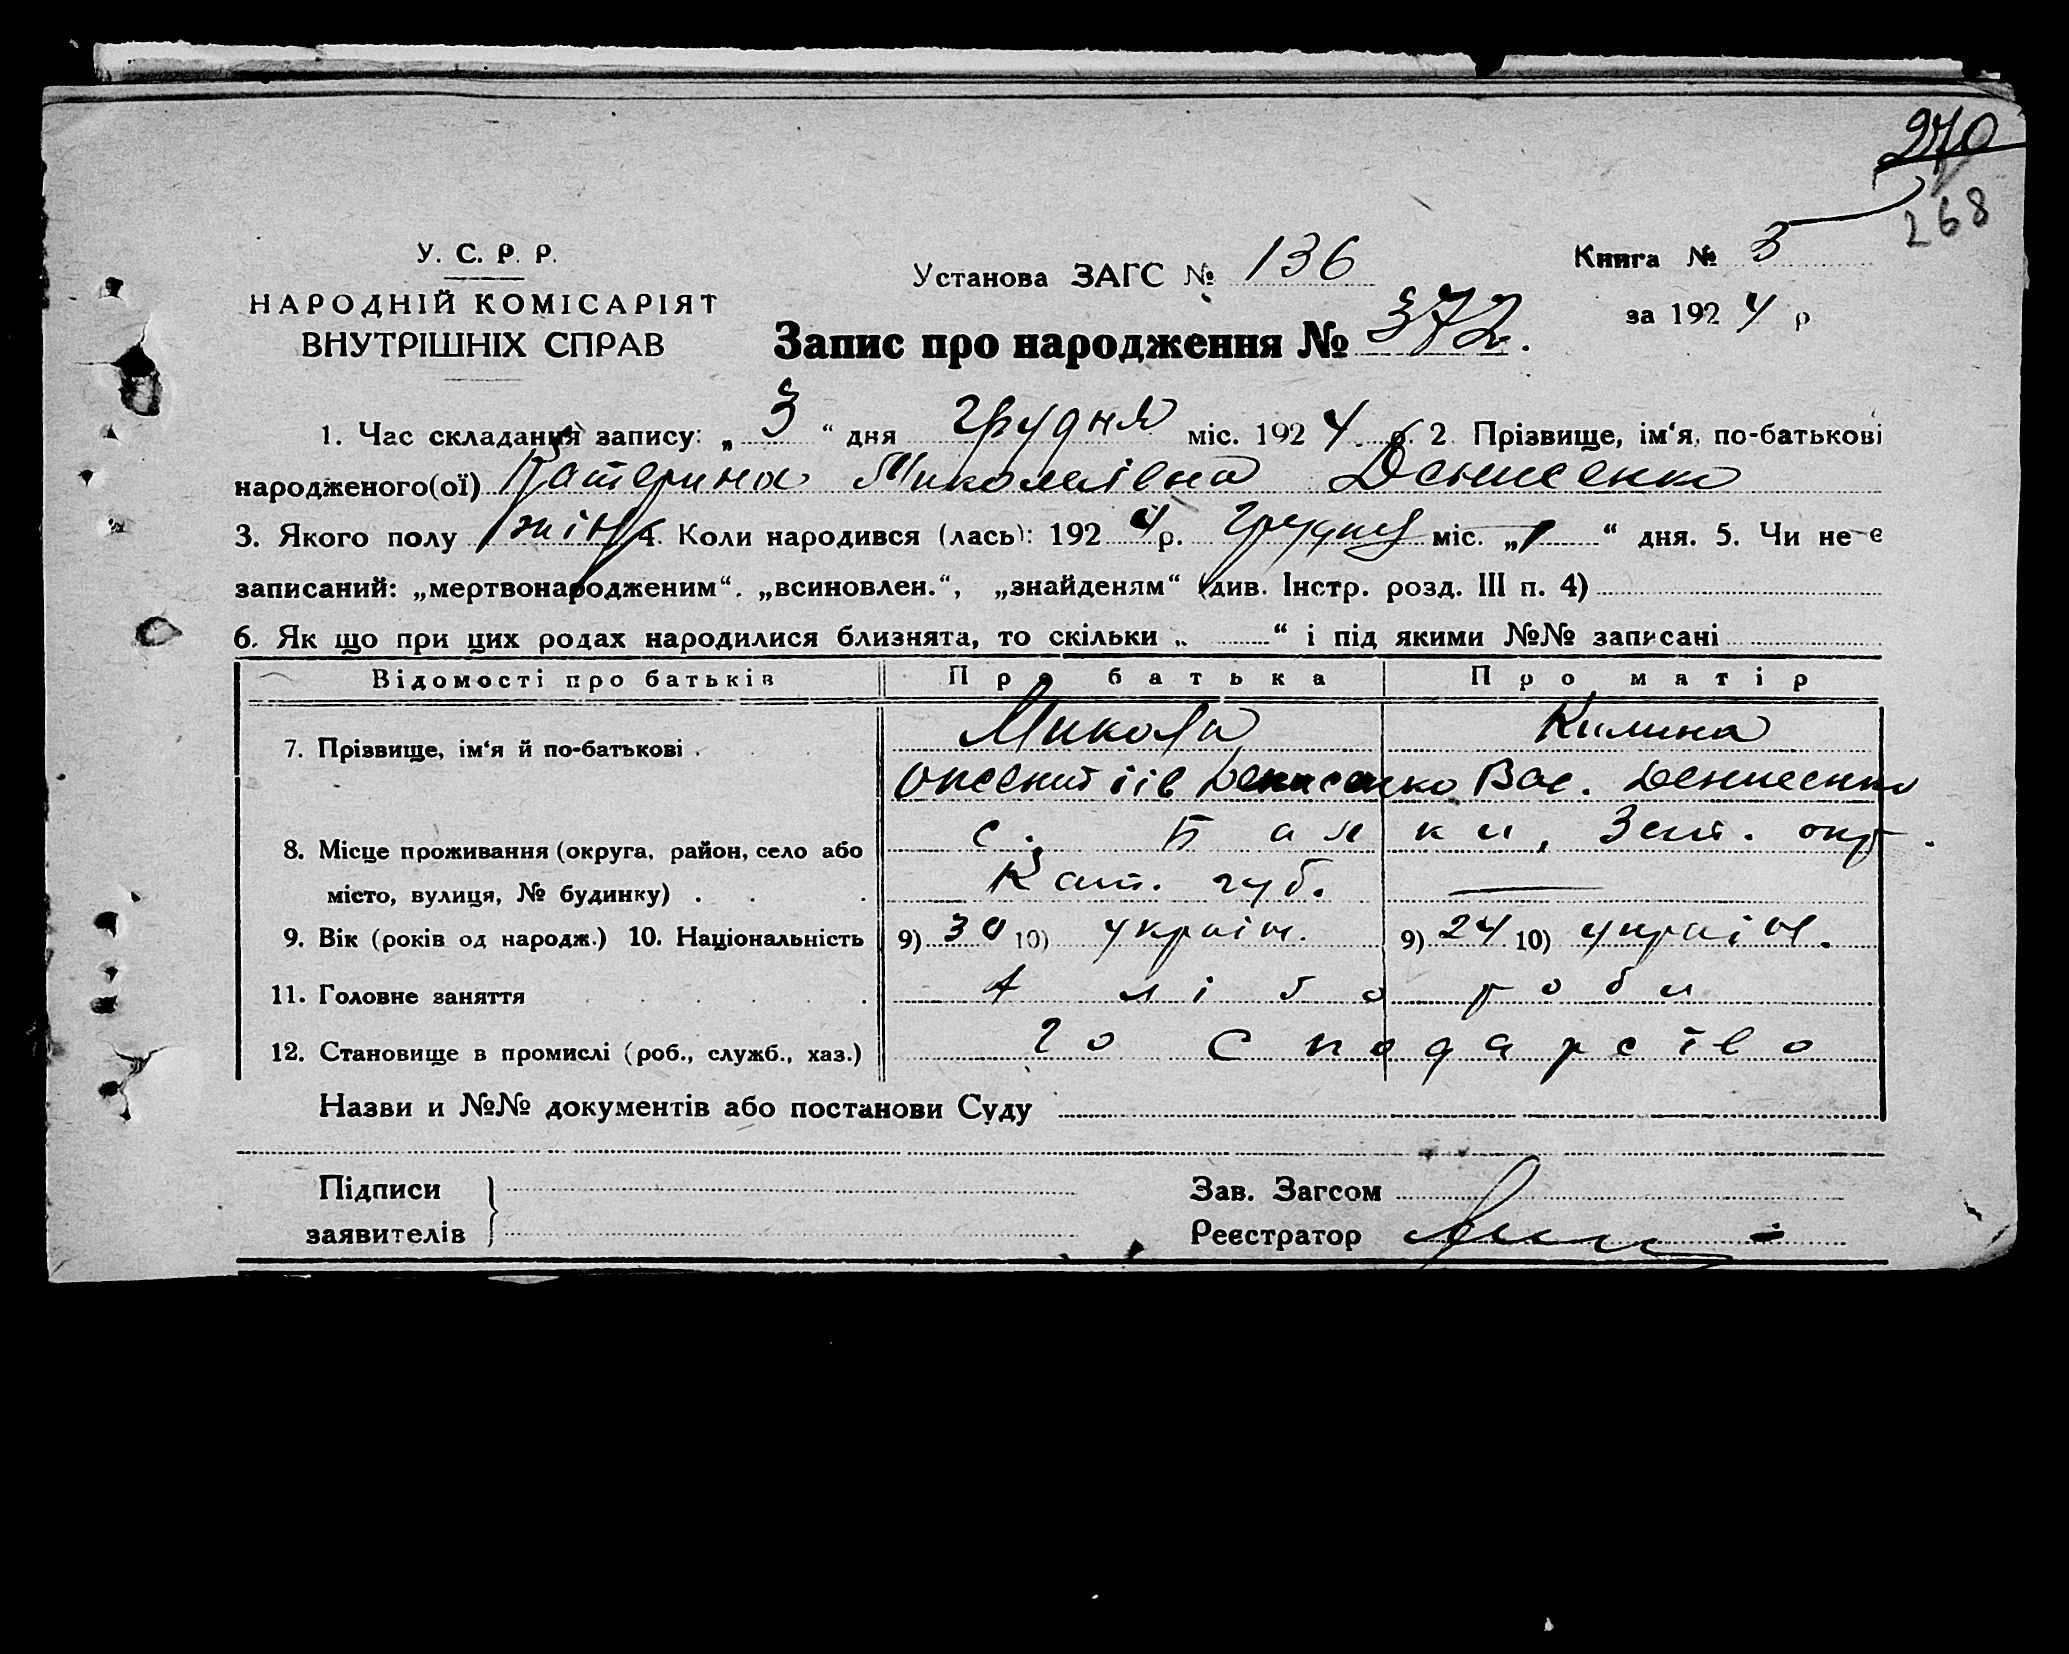 270
268
У. С. Р. Р.
НАРОДНІЙ КОМІСАРІЯТ
ВНУТРІШНІХ СПРАВ
Установа ЗАГС № 136
Книга № 3
за 1924 р
Запис про народження № 372.
1. Час складання запису: „3“ дня грудня міс. 1924 р. 2. Прізвище, ім‘я, по-батькові
народженого(ої) Катерина Миколаівна Денисенко
3. Якого полу жін. 4. Коли народився (лась): 1924 р. грудня міс. „1“ дня. 5. Чи не є
записаний: „мертвонародженим“. „всиновлен.“, „знайденям“ (див. Інстр. розд. III п. 4)
6. Як що при цих родах народилися близнята, то скільки „ “ і під якими №№ записані
Відомості про батьків Про батька Про матір
7. Прізвище, ім‘я й по-батькові . Микола Килина
Оксентіів Денисенко Вас. Денисенко
8. Місце проживання (округа, район, село або с. Балки, Зап. окр.
місто, вулиця, № будинку) . . . Кат. губ.
9. Вік (років од народж.) 10. Національність 9) 30 10) украін. 9) 24 10) украін.
11. Головне заняття . . . . . . хліборобы
12. Становище в промислі (роб., служб., хаз.) господарство
Назви и №№ документів або постанови Суду
Підписи
заявителів
Зав. Загсом
Реєстратор